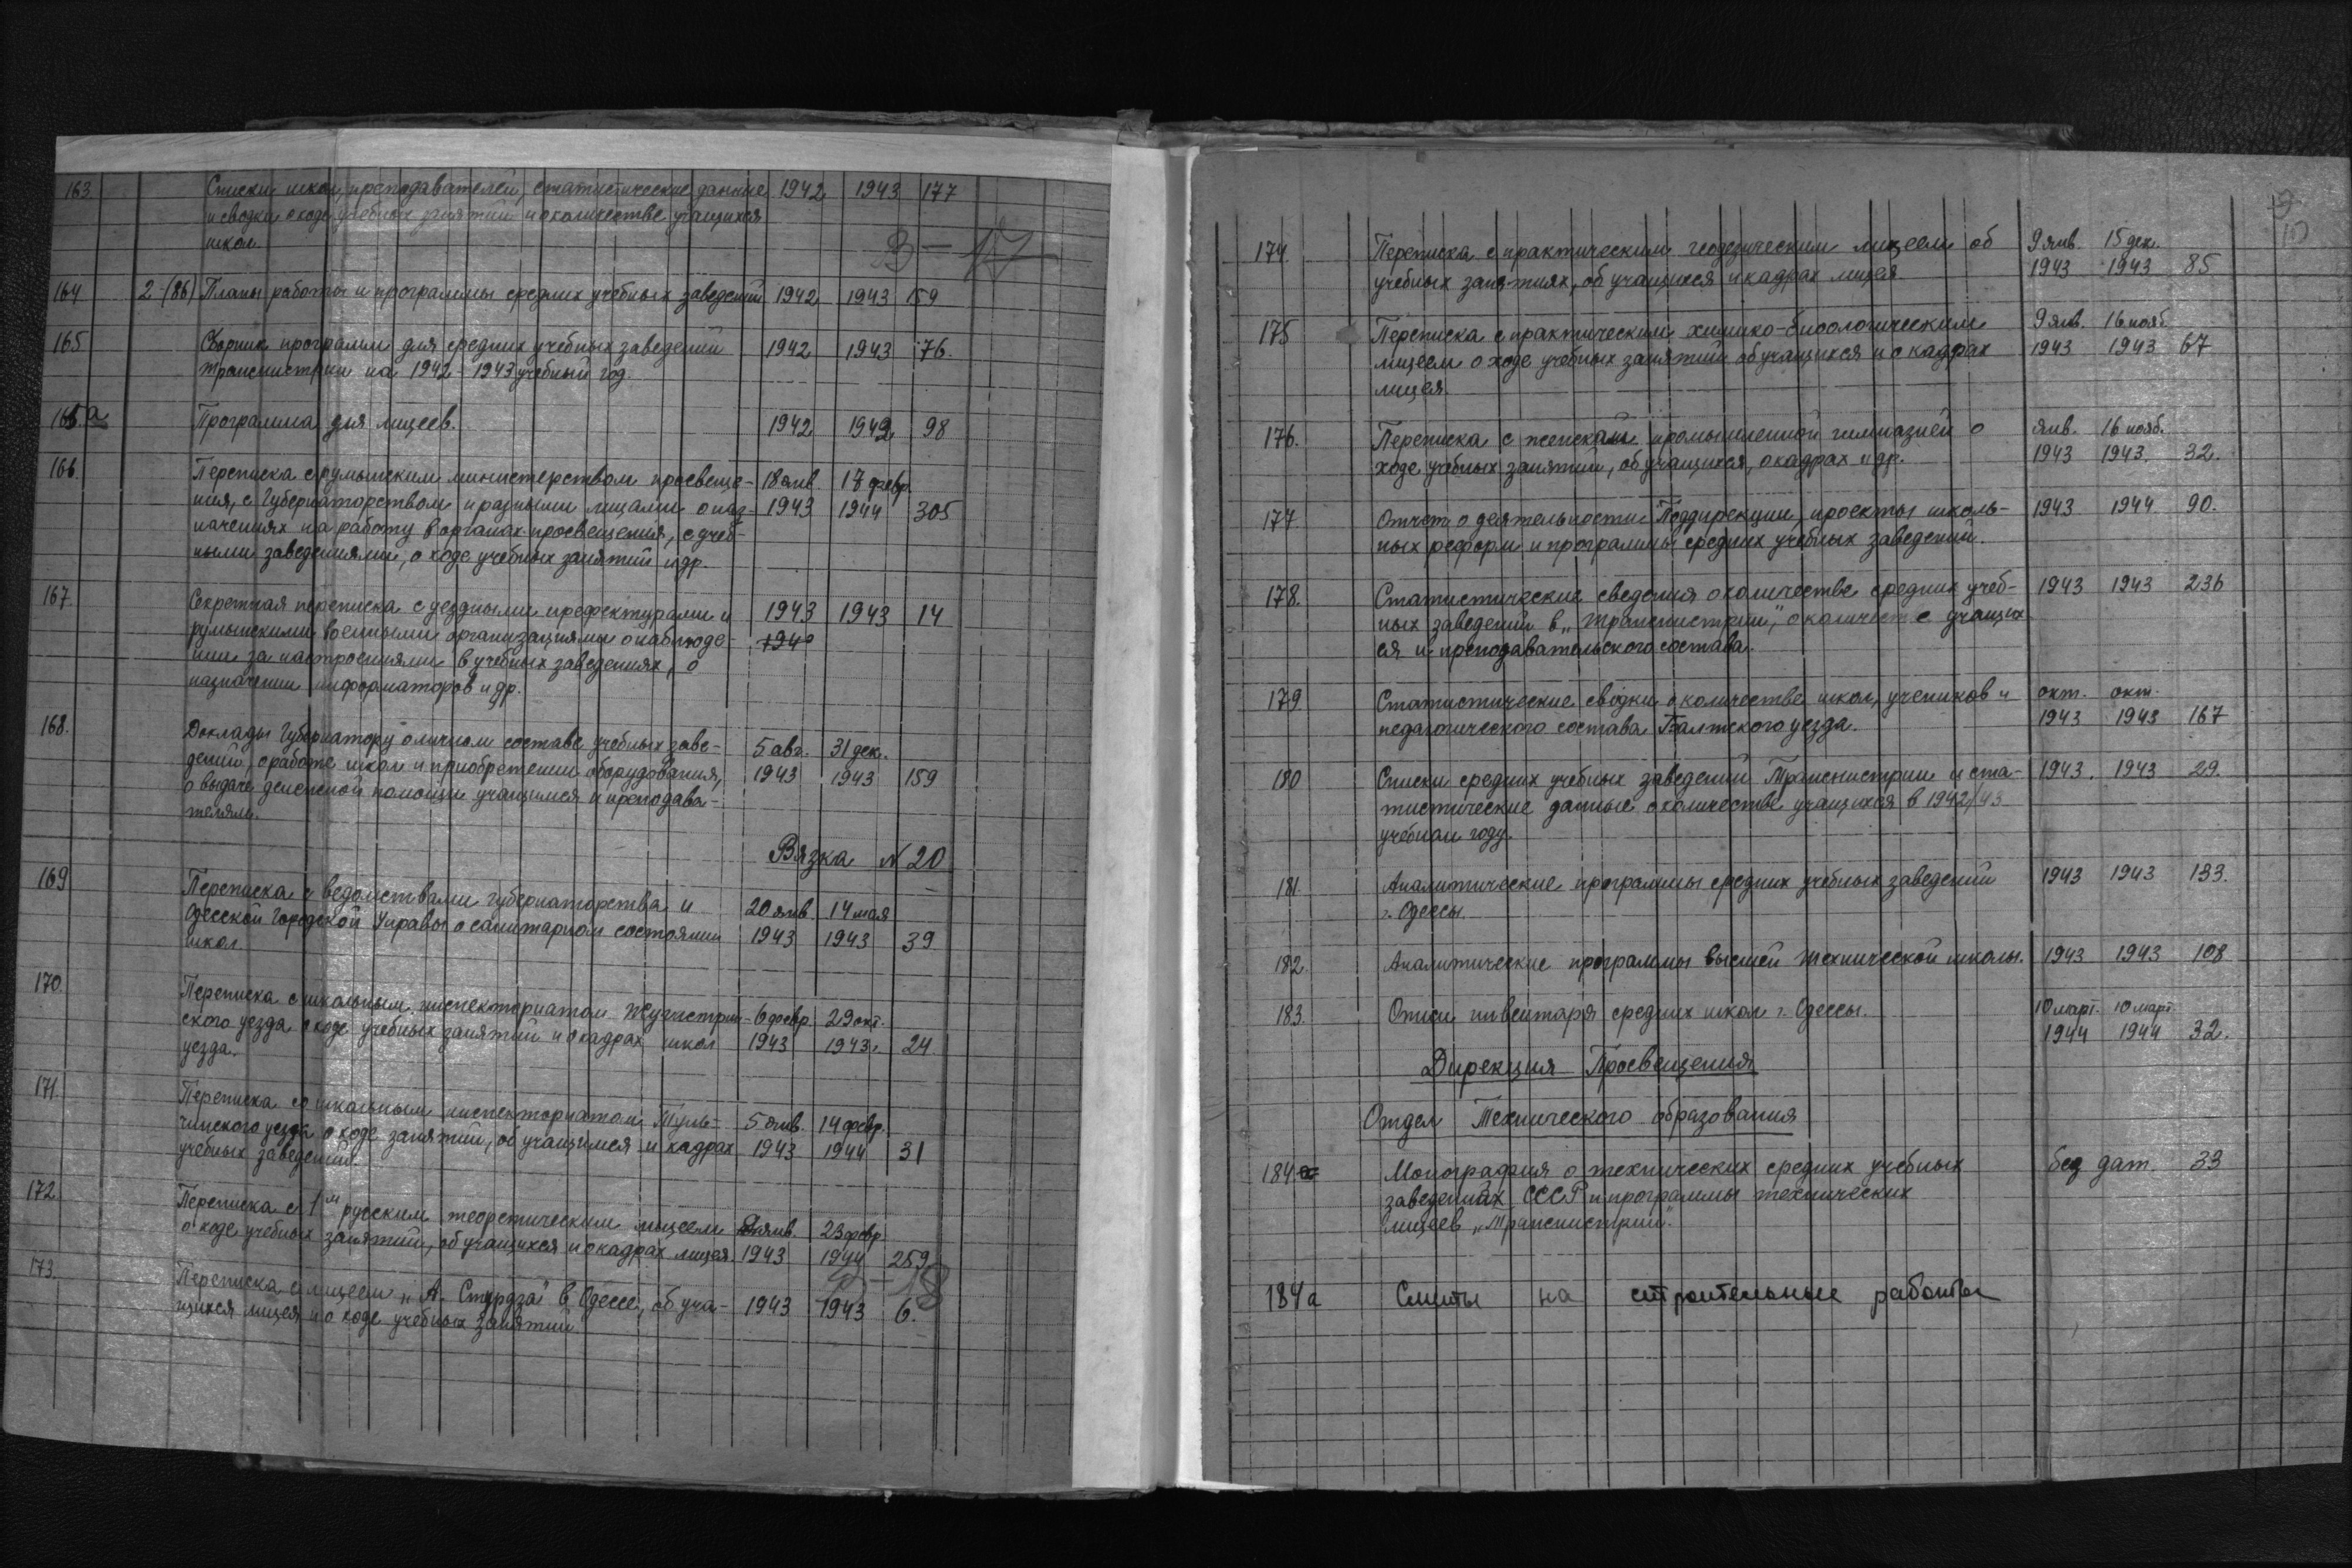 163 Списки школ, преподавателей, статистические данные 1942 1943 177
и сводки о ходе учебных занятий и о количестве учащихся
школ.
3 - 17
164 2-(86) Планы работы и программы средних учебных заведений 1942 1943 159
165 Сборник программ для средних учебных заведений 1942 1943 76.
Транснистрии на 1942-1943 учебный год.
165.а Программа для лицеев. 1942 1942 98
166. Переписка с румынским министерством просвеще- 18 янв. 17 февр.
ния, с Губернаторством и разными лицами о наз- 1943 1944 305
начениях на работу в органах просвещения, с учеб-
ными заведениями, о ходе учебных занятий и др.
167. Секретная переписка с уездными префектурами и 1943 1943 14
румынскими военными организациями о наблюде- 1940
нии за настроениями в учебных заведениях, о
назначении информаторов и др.
168. Доклады Губернатору о личном составе учебных заве- 5 авг. 31 дек.
дений, о работе школ и приобретении оборудования, 1943 1943 159
о выдаче денежной помощи учащимся и преподава-
телям.
Вязка N 20
169 Переписка с ведомствами губернаторства и 20 янв. 14 мая
Одесской Городской Управы о санитарном состоянии 1943 1943 39
школ.
170. Переписка с школьным инспекториатом Жугастрин- 6 февр. 29 окт.
ского уезда о ходе учебных занятий и о кадрах школ 1943 1943. 24.
уезда.
171. Переписка со школьным инспекториатом Туль- 5 янв. 14 февр.
чинского уезда о ходе занятий, об учащимся и кадрах 1943 1944 31
учебных заведений.
172 Переписка с 1м русским теоретическим лицеем янв. 23 февр.
о ходе учебных занятий, об учащихся и о кадрах лицея. 1943 1944 259
173. Переписка с лицеем „А. Стурдза" в Одессе, об уча- 1943 1943 6.
щихся лицея и о ходе учебных занятий.
18
174. Переписка с практическим геодезическим лицеем об 9 янв. 15 дек.
учебных занятиях, об учащихся и кадрах лицея 1943 1943 85
175 Переписка с практическим химико-биологическим 9 янв. 16 нояб.
лицеем о ходе учебных занятий об учащихся и о кадрах 1943 1943 67
лицея.
176. Переписка с женской промышленной гимназией о янв. 16 нояб.
ходе учебных занятий, об учащихся, о кадрах и др. 1943 1943. 32.
177 Отчет о деятельности Поддирекции, проекты школь- 1943 1944 90.
ных реформ и программы средних учебных заведений.
178. Статистические сведения о количестве средних учеб- 1943 1943 236
ных заведений в „Транснистрии", о количест е учащих
ся и преподавательского состава.
179 Статистические сводки о количестве школ, учеников и окт. окт.
педагогического состава Балтского уезда. 1943 1943 167
180 Списки средних учебных заведений Транснистрии и ста- 1943. 1943 29.
тистические данные о количестве учащихся в 1942/43
учебном году.
181. Аналитические программы средних учебных заведений 1943 1943 133.
г. Одессы.
182. Аналитические программы высшей технической школы. 1943 1943 108
183. Описи инвентаря средних школ г. Одессы. 10 март. 10 март.
1944 1944 32.
Дирекция Просвещения
Отдел Технического образования
184. Монография о технических средних учебных без дат. 33
заведениях СССР и программы технических
лицеев „Транснистрии".
184а Сметы на строительные работы